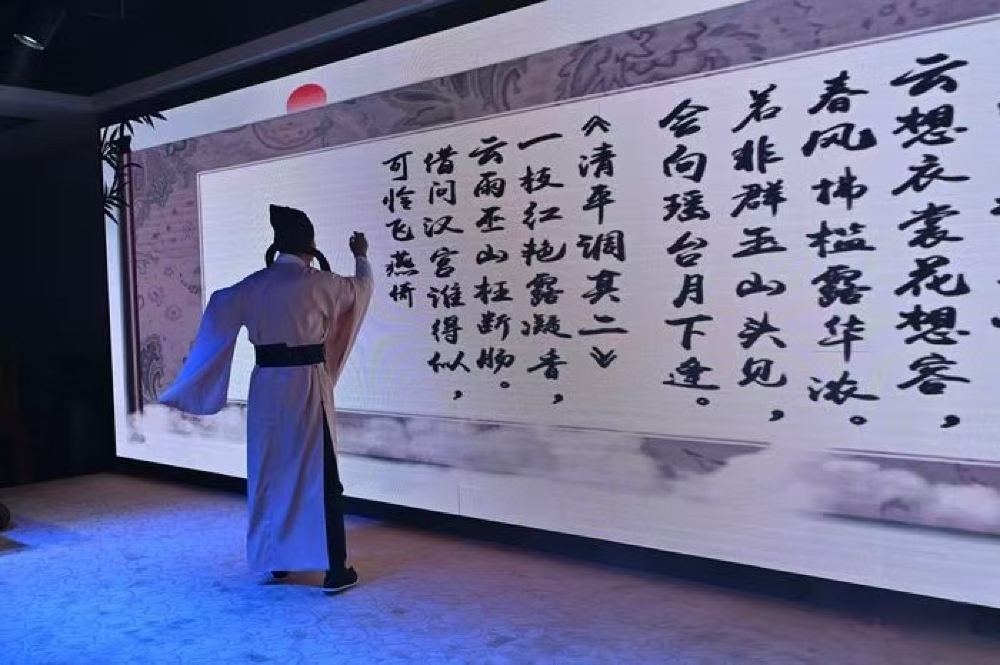 云想衣裳花想容，
春风拂槛露华浓。
若非群玉山头见，
会向瑶台月下逢。
《清平调其二》
一枝红艳露凝香，
云雨巫山枉断肠。
借问汉宫谁得似，
可怜飞燕娇